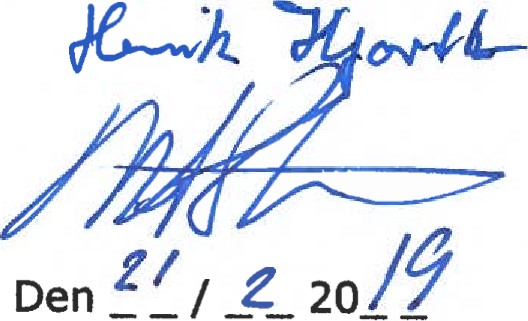 Henrik Hjorth
Den 21 / 2 2019